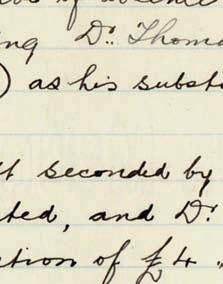 of
ing Dr. Thoma
) as his substi
t seconded by
ted, and Dr.
tion of £4